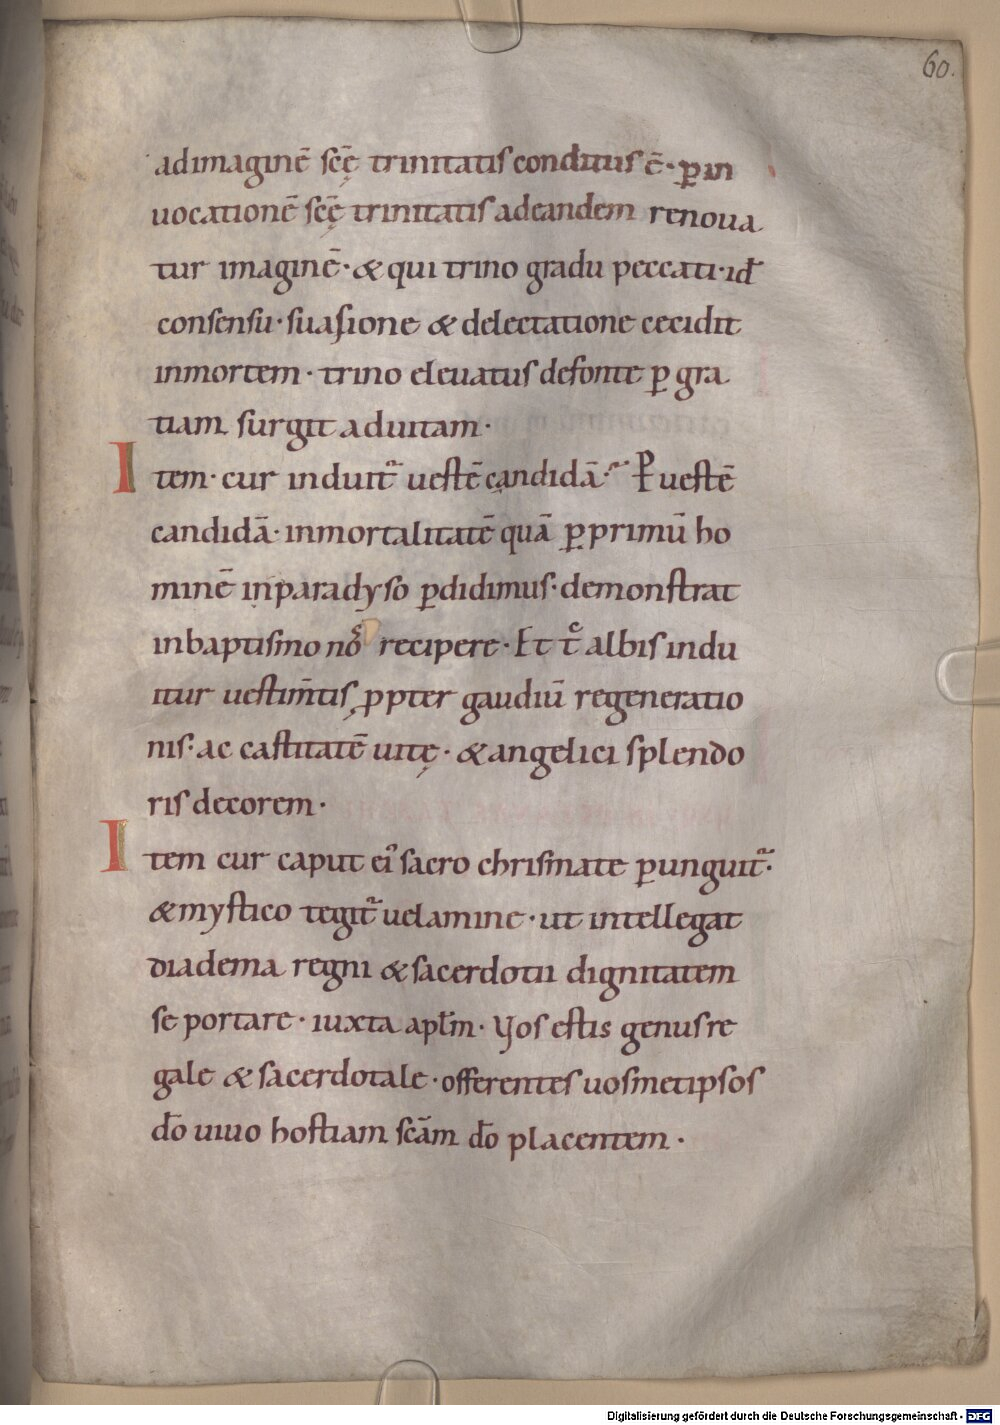 60.
adimaginē scę̄ trinitatis conditus ē· ꝑ in
uocationē scę̄ trinitatis adeandem renoua
tur imaginē· & qui trino gradu peccati· id̄
consensu· suasione & delectatione cecidit
inmortem· trino eleuatus defonte ꝑ gra
tiam surgit aduitam·
Item· cur induit᷑ uestē candidā· ꝑ uestē
candidā· inmortalitatē quā ꝑ primū ho
minē inparadyso ꝑdidimus· demonstrat
inbaptismo noͨ recipere· Et tͨ albis indu
itur uestim̄tis, ꝓpter gaudiū regeneratio
nis· ac castitatē uitę· & angelici splendo
ris decorem·
Item cur caput eiꝰ sacro chrismate ꝑunguit᷑·
& mystico tegit᷑ uelamine· ut intellegat
diadema regni & sacerdotii dignitatem
se portare· iuxta apl̄m· Vos estis genus re
gale & sacerdotale· offerentes uosmetipsos
dō uiuo hostiam scām dō placentem·
Digitalisierung gefördert durch die Deutsche Forschungsgemeinschaft - DFG